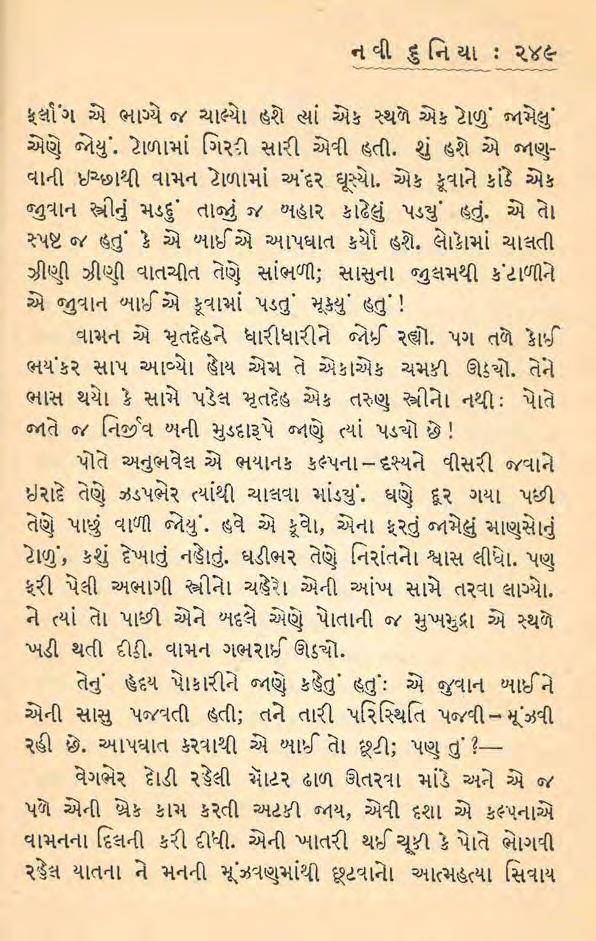 નવી દુનિયા : ૨૪૯
ફર્લાંગ એ ભાગ્યે જ ચાલ્યો હશે ત્યાં એક સ્થળે એક ટોળું જામેલું
એણે જોયું. ટોળામાં ગિરદી સારી એવી હતી. શું હશે એ જાણ-
વાની ઇચ્છાથી વામન ટોળામાં અંદર ઘૂસ્યો. એક કૂવાને કાંઠે એક
જુવાન સ્ત્રીનું મડદું તાજું જ બહાર કાઢેલું પડયું હતું. એ તો
સ્પષ્ટ જ હતું કે એ બાઈએ આપઘાત કર્યો હશે. લોકોમાં ચાલતી
ઝીણી ઝીણી વાતચીત તેણે સાંભળી; સાસુના જુલમથી કંટાળીને
એ જુવાન બાઈએ કૂવામાં પડતું મૂક્યું હતું !
વામન એ મૃતદેહને ધારીધારીને જોઈ રહ્યો. પગ તળે કોઈ
ભયંકર સાપ આવ્યો હોય એમ તે એકાએક ચમકી ઊઠયો. તેને
ભાસ થયો કે સામે પડેલ મૃતદેહ એક તરુણ સ્ત્રીનો નથી : પોતે
જાતે જ નિર્જીવ બની મુડદારૂપે જાણે ત્યાં પડયો છે !
પોતે અનુભવેલ એ ભયાનક કલ્પના–દૃશ્યને વીસરી જવાને
ઇરાદે તેણે ઝડપભેર ત્યાંથી ચાલવા માંડયું. ઘણે દૂર ગયા પછી
તેણે પાછું વાળી જોયું. હવે એ કૂવો, એના ફરતું જામેલું માણસોનું
ટોળું, કશું દેખાતું નહોતું. ઘડીભર તેણે નિરાંતનો શ્વાસ લીધો. પણ
ફરી પેલી અભાગી સ્ત્રીનો ચહેરો એની આંખ સામે તરવા લાગ્યો.
ને ત્યાં તો પાછી એને બદલે એણે પોતાની જ મુખમુદ્રા એ સ્થળે
ખડી થતી દીઠી. વામન ગભરાઈ ઊઠયો.
તેનું હૃદય પોકારીને જાણે કહેતું હતું : એ જુવાન બાઈને
એની સાસુ પજવતી હતી; તને તારી પરિસ્થિતિ પજવી–મૂંઝવી
રહી છે. આપઘાત કરવાથી એ બાઈ તો છૂટી; પણ તું ?—
વેગભેર દોડી રહેલી મૉટર ઢાળ ઊતરવા માંડે અને એ જ
પળે એની બ્રેક કામ કરતી અટકી જાય, એવી દશા એ કલ્પનાએ
વામનના દિલની કરી દીધી. એની ખાતરી થઈ ચૂકી કે પોતે ભોગવી
રહેલ યાતના ને મનની મૂંઝવણમાંથી છૂટવાનો આત્મહત્યા સિવાય